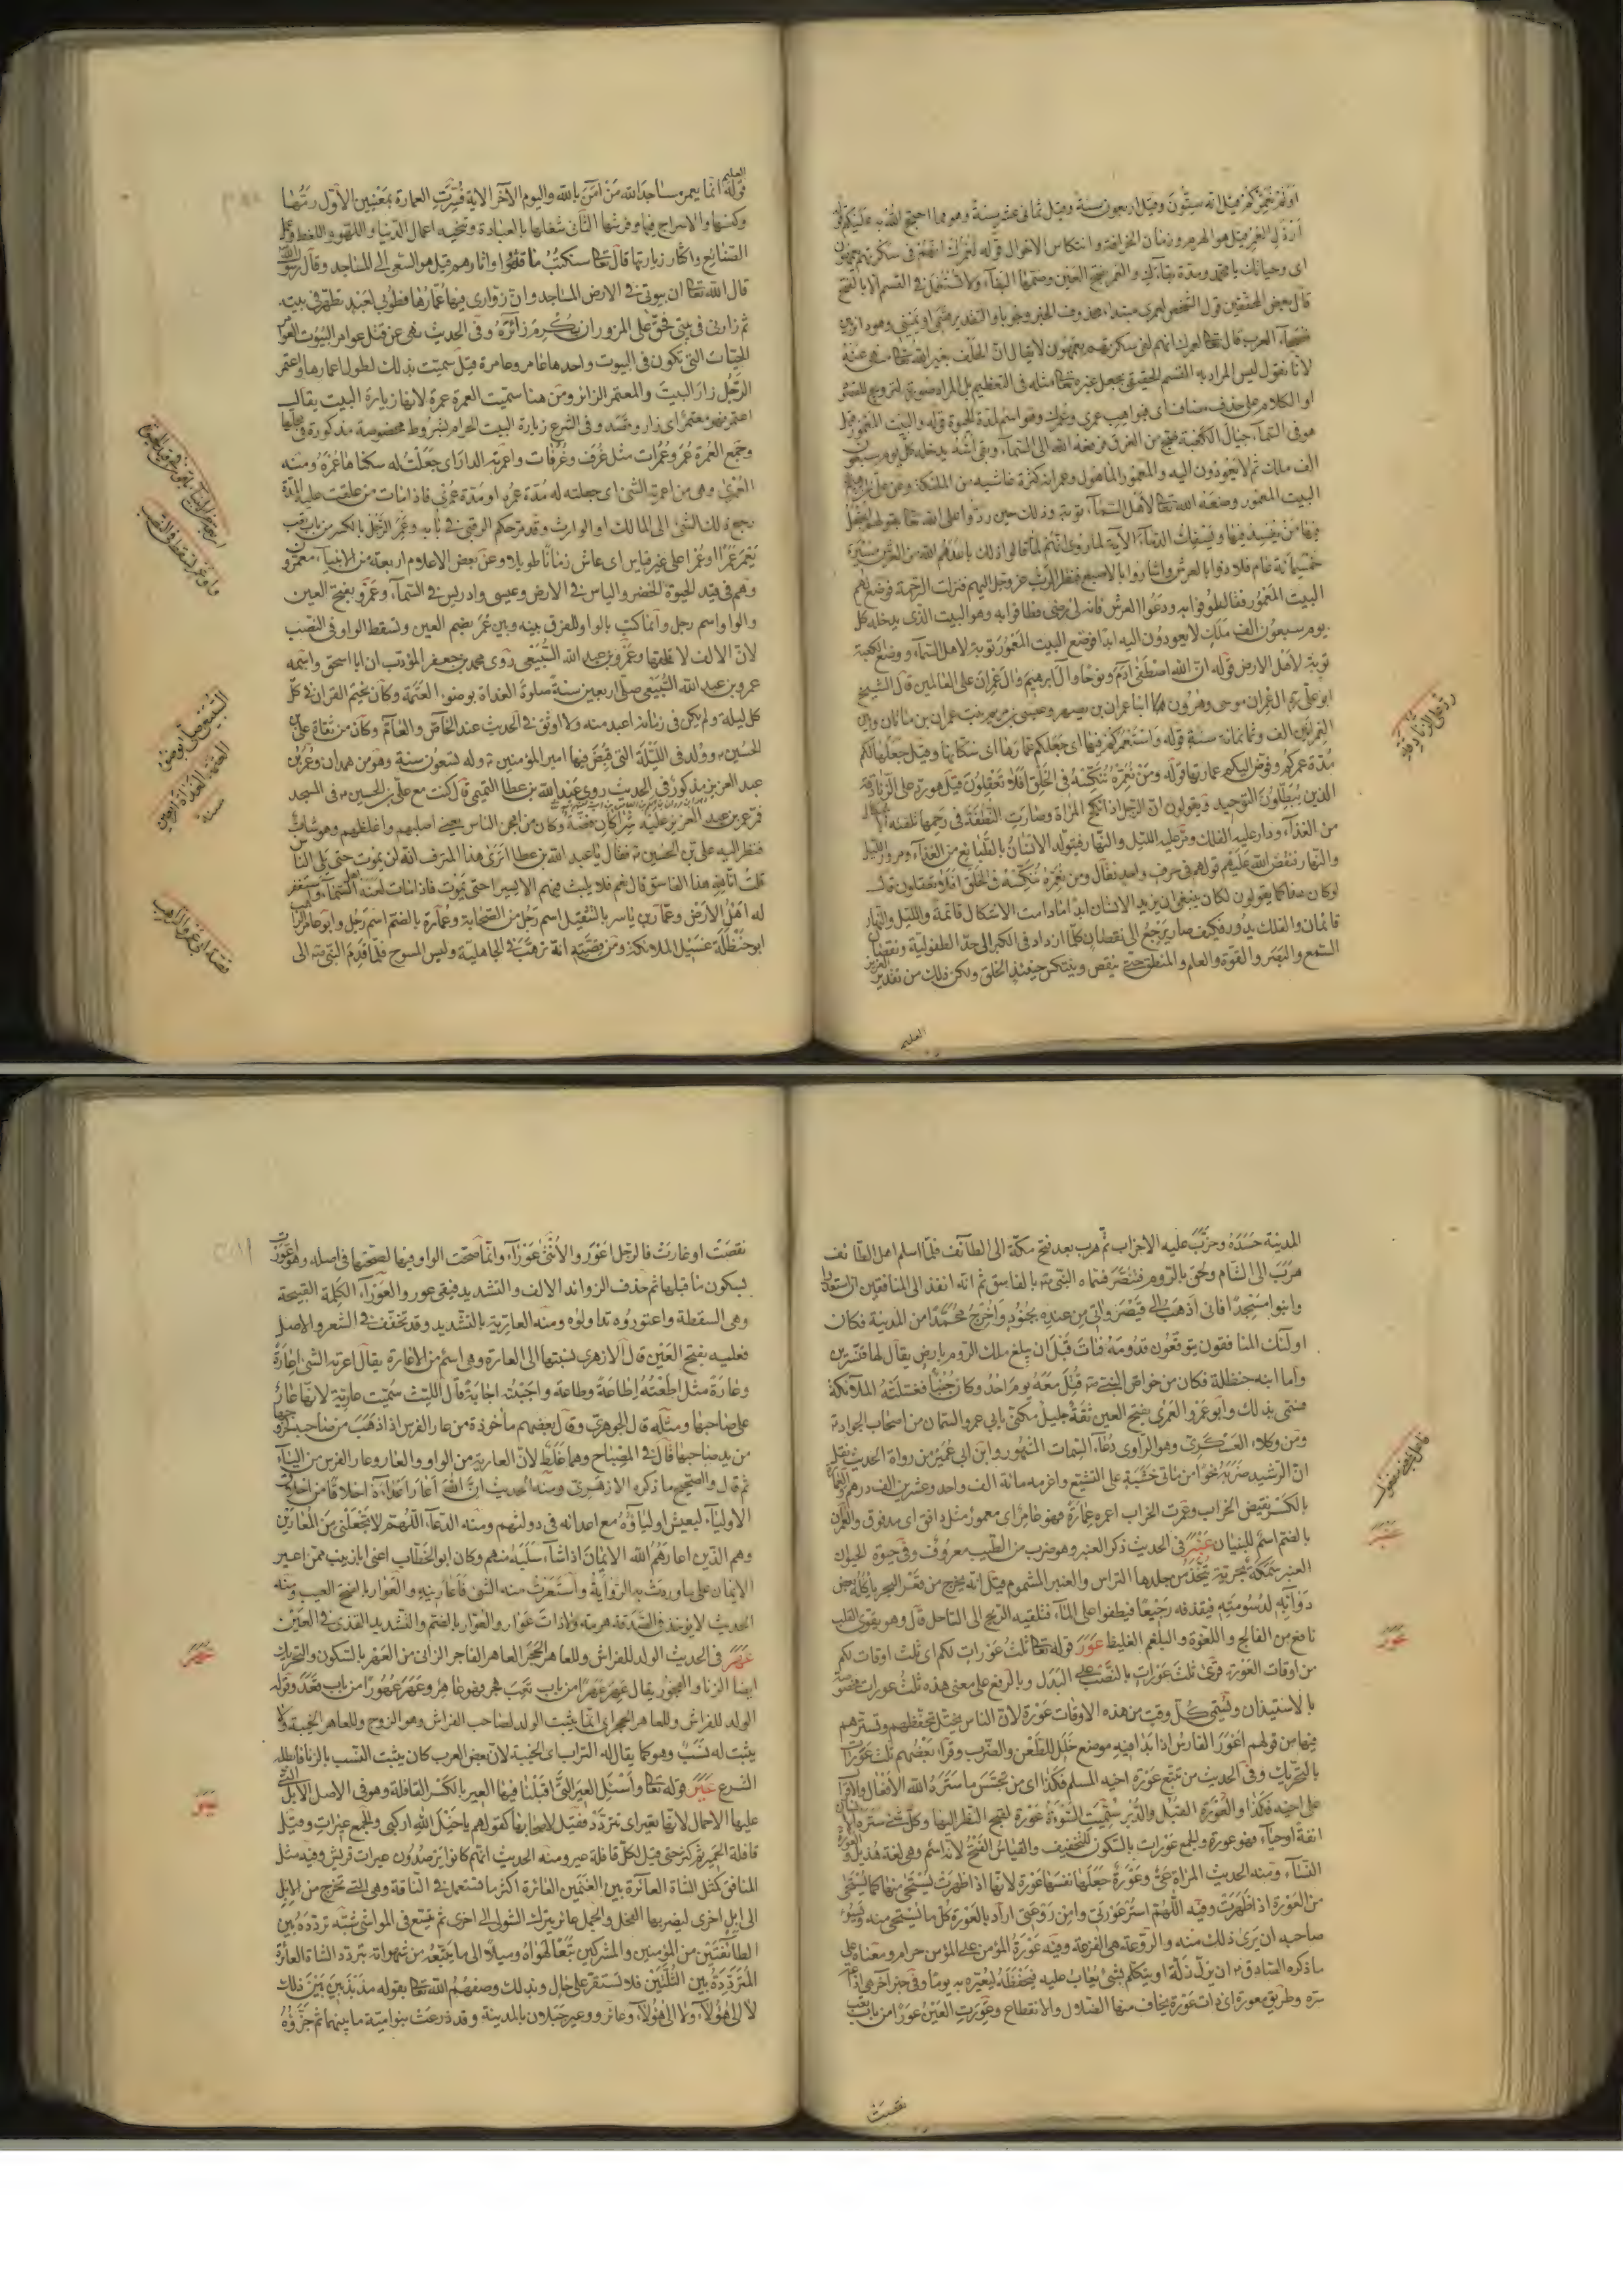 او لم نعمركم قيل انه ستون وقيل اربعون سنة وقيل ثماني عشر سنة وهو مما احتج الله به عليكم
ارذل العمر قيل هو الهرم وزمان الخرافة وانتكاس الاحوال قوله لعمرك انهم في سكرتهم يعمهون
اى وحياتك يا محمد ومدة بقائك والعمر بفتح العين وضمها البقاء ولا تستعمل في القسم الا بالفتح
قال بعض المحققين قول الشخص لعمرى مبتداء محذوف الخبر وجوبا والتقدير قسمى او يمينى وهو دائر بين
فصحاء العرب قال تعالى لعمرك انهم لفى سكرتهم يعمهون لا يقال ان الحلف بغير الله تعالى منهى عنه
لانا نقول ليس المراد به القسم الحقيقى بجعل غيره تعالى مثله في التعظيم بل المراد صورته لترويج المقصود
او الكلام على حذف مضاف اى فبواهب عمرى وعمرك وهو اسم لمدة الحيوة قوله والبيت المعمور قيل
هو في السماء حيال الكعبة ضج من الغرق فرفعه الله الى السماء وبقى اسه يدخله كل يوم سبعون
الف ملك ثم لا يعودون اليه والمعمور المأهول وعمرانه كثرة غاشيه من الملئكة وعن على بن
البيت المعمور وضعه الله تعالى لاهل السماء توبة وذلك حين ردوا على الله تعالى بقولهم اتجعل
فيها من يفسد فيها ويسفك الدماء الآية لما روى انهم لما قالوا ذلك باعدهم الله من العرش مسيرة
خمسمائة عام فلاذوا بالعرش واشاروا بالاصبع فنظر الرب عز وجل اليهم فنزلت الرحمة فوضع لهم
البيت المعمور فقال طوفوا به ودعوا العرش فانه لى رضى فطافوا به وهو البيت الذى يدخله كل
يوم سبعون الف ملك لا يعودون اليه ابدا فوضع البيت المعمور توبة لاهل السماء ووضع الكعبة
توبة لاهل الارض قوله ان الله اصطفى ادم ونوحا وآل ابرهيم وال عمران على العالمين قال الشيخ
ابو على آل عمران موسى وهرون هما ابنا عمران بن يصهر وعيسى بن مريم بنت عمران بن ماثان وبين
العمرانين الف وثمانمائة سنة قوله واستعمركم فيها اى جعلكم عمارها اى سكانها وقيل جعلها لكم
مدة عمركم وفوض اليكم عمارتها قوله ومن نعمره ننكسه في الخلق افلا تعقلون قيل هو رد على الزنادقة
الذين يبطلون التوحيد ويقولون ان الرجل اذا نكح المرأة وصارت النطفة في رحمها تلقته
من الغذاء ودار عليه الفلك ومر عليه الليل والنهار فيتولد الانسان بالطبايع من الغذاء ومرور الليل
والنهار فنقض الله عليهم قولهم في حرف واحد فقال ومن نعمره ننكسه في الخلق افلا يعقلون
لو كان هذا كما يقولون لكان ينبغى ان يزيد الانسان ابدا ما دامت الاشكال قائمة والليل والنهار
قائمان والفلك يدور فكيف صار يرجع الى نقصان كلما ازداد في الكبر الى حد الطفولية ونقصان
السمع والبصر والقوة والعلم والمنطق حتى ينقص وينتكس حينئذ الخلق ولكن ذلك من تقدير العزيز
العليم
رد على الزنادقة
العليم
قوله انما يعمر مساجد الله من آمن بالله واليوم الآخر الاية فسرت العمارة بمعنيين الاول رمها
وكنسها والاسراج فيها وفرشها الثانى شغلها بالعبادة وتنحية اعمال الدنيا واللهو واللغط وعمل
الصنائع واكثار زيارتها قال تعالى سنكتب ما قدموا واثارهم قيل هو السعى الى المساجد وقال
قال الله تعالى ان بيوتى في الارض المساجد وان زوارى فيها عمارها فطوبى لعبد تطهر في بيته
ثم زارنى في بيتى فحق على المزور ان يكرم زائره وفي الحديث نهى عن قتل عوامر البيوت
الحيات التى تكون في البيوت واحدها عامر وعامرة قيل سميت بذلك لطول اعمارها واعتمر
الرجل زار البيت والمعتمر الزائر ومن هنا سميت العمرة عمرة لانها زيارة البيت يقال
اعتمر فهو معتمر اى زار وقصد وفي الشرع زيارة البيت الحرام بشروط مخصوصة مذكورة في محلها
وجمع العمرة عمر وعمرات مثل غرف وغرفات واعمرته الدار اى جعلت له سكناها عمره ومنه
العمرى وهى من اعمرته الشئ اى جعلته له مدة عمره او مدة عمرى فاذا مات من علقت عليه المدة
رجع ذلك الشئ الى المالك او الوارث وقد مر حكم الرقبى في بابه وعمر الرجل بالكسر من باب تعب
يعمر عمرا وعمرا على غير قياس اى عاش زمانا طويلا وعن بعض الاعلام اربعة من الانبياء معمرون
وهم في قيد الحيوة الخضر والياس في الارض وعيسى وادريس في السماء وعمرو بفتح العين
والواو اسم رجل وانما كتب بالواو للفرق بينه وبين عمر بضم العين وتسقط الواو في النصب
لان الالف لا تخلفها وعمرو بن عبد الله السبيعى روى محمد بن جعفر المؤدب ان ابا اسحق واسمه
عمرو بن عبد الله السبيعى صلى اربعين سنة صلوة الغداة بوضوء العتمة وكان يختم القران في كل
كل ليلة ولم يكن في زمانه اعبد منه ولا اوثق في الحديث عند الخاص والعام وكان من ثقات على بن
الحسين ولد في الليلة التى قبض فيها امير المؤمنين وله تسعون سنة وهو من همدان وعمر بن
عبد العزيز مذكور في الحديث روى عبد الله بن عطا التميمى قال كنت مع على بن الحسين في المسجد
فمر عمر بن عبد العزيز عليه شراكان فضة وكان من امجن الناس يعنى اصلبهم واغلظهم وهو شاب
فنظر اليه على بن الحسين فقال يا عبد الله بن عطا اترى هذا المترف انه لن يموت حتى يلى الناس
قلت انا لله هذا الفاسق قال نعم فلا يلبث فيهم الا يسيرا حتى يموت فاذا مات لعنه اهل السماء واستغفر
له اهل الارض وعمار بن ياسر بالتثقيل اسم رجل من الصحابة وعمارة بالضم اسم رجل وابو عامر الراهب
ابو حنظلة غسيل الملائكة ومن قصته انه ترهب في الجاهلية ولبس المسوح فلما قدم النبى الى
السبيعى صلى بوضوء
العتمة الغداة اربعين
سنة
قصة ابو عمر والراهب
المدينة حسده وحزب عليه الاحزاب ثم هرب بعد فتح مكة الى الطائف فلما اسلم اهل الطائف
هرب الى الشام ولحق بالروم فتنصر فسماه النبى بالفاسق ثم انه انفذ الى المنافقين ان استعدوا
وابنوا مسجدا فانى اذهب الى قيصر واتى من عنده بجنود واخرج محمدا من المدينة فكان
اولئك المنافقون يتوقعون قدومه فمات قبل ان يبلغ ملك الروم بارض يقال لها قنسرين
واما ابنه حنظلة فكان من خواص النبى قتل معه يوم احد وكان جنبا فغسلته الملائكة
فسمى بذلك وابو عمرو العمرى بفتح العين ثقة جليل مكنى بابى عمرو السمان من اصحاب الجواد
ومن وكلاء العسكرى وهو الراوى دعاء السمات المشهور وابن ابى عمير من رواة الحديث نقل
ان الرشيد ضربه نحوا من مأتى خشبة على التشيع واغرمه مائة الف واحد وعشرين الف درهم
بالكسر نقيض الخراب وعمرت الخراب اعمره عمارة فهو عامر اى معمور مثل دافق اى مدفوق والعمران
بالضم اسم للبنيان عنبر في الحديث ذكر العنبر وهو ضرب من الطيب معروف وفي حيوة الحيوان
العنبر سمكة بحرية يتخذ من جلدها التراس والعنبر المشموم قيل انه يخرج من قعر البحر يأكله بعض
دوابه لدسومته فيقذفه رجيعا فيطفوا على الماء فتلقيه الريح الى الساحل قال وهو يقوى القلب
نافع من الفالج واللقوة والبلغم الغليظ عور قوله تعالى ثلث عورات لكم اى ثلث اوقات لكم
من اوقات العورة قرئ ثلث عورات بالنصب على البدل وبالرفع على معنى هذه ثلث عورات
بالاستيذان وتسمى كل وقت من هذه الاوقات عورة لان الناس يختل تحفظهم وتسترهم
فيها من قولهم اعور الفارس اذا بدا فيه موضع خلل للطعن والضرب وقراء بعضهم ثلث عورات
بالتحريك وفي الحديث من تتبع عورة اخيه المسلم فكذا اى من تجسس ما ستره الله الافعال والاقوال
على اخيه فكذا والعورة القبل والدبر سميت السوءة عورة لقبح النظر اليها وكل شئ ستره
انفة او حياء فهو عورة والجمع عورات بالسكون للتخفيف والقياس الفتح لانه اسم وهى لغة هذيل
النساء ومنه الحديث المرأة عى وعورة جعلها نفسها عورة لانها اذا ظهرت يستحى منها كما يستحى
من العورة اذا ظهرت وفيه اللهم استر عورتى وامن روعتى اراد بالعورة كل ما يستحى منه ويسوء
صاحبه ان يرى ذلك منه والروعة هى الفزعة وفيه عورة المؤمن على المؤمن حرام ومعناه على
ما ذكره الصادق ان يزل زلة او يتكلم بشئ يعاب عليه فيحفظه ليعيره به يوما وفي خبر آخر هى اذاعة
سره وطريق معورة اى ذات عورة يخاف منها الضلال والانقطاع وعورت العين عورا من باب تعب
عنبر
عور
نقصت
نقصت او غارت فالرجل اعور والانثى عوراء وانما صحت الواو فيها لصحتها في اصله وهو اعورت
بسكون ما قبلها ثم حذف الزوائد الالف والتشديد فبقى عور والعوراء الكلمة القبيحة
وهى السقطة واعتوروه تداولوه ومنه العارية بالتشديد وقد تخفف في الشعر والاصل
فعلية بفتح العين قال الازهرى نسبتها الى العارة وهى اسم من الاعارة يقال اعرته الشئ اعارة
وعارة مثل اطعته اطاعة وطاعة واجبته اجابة قال الليث سميت عارية لانها عار
على صاحبها ومثله قال الجوهرى وقال بعضهم مأخوذة من عار الفرس اذا ذهب من صاحبه لخروجها
من يد صاحبها قال في المصباح وهما غلط لان العارية من الواو والعار وعار الفرس من الياء
ثم قال والصحيح ما ذكره الازهرى ومنه الحديث ان الله اعار اعداءه اخلاقا من اخلاق
الاولياء ليعيش اولياؤه مع اعدائه في دولتهم ومنه الدعاء اللهم لا تجعلنى من المعارين
وهم الذين اعارهم الله الايمان اذا شاء سلبه منهم وكان ابو الخطاب اعنى ابا زينب ممن اعير
الايمان على ما وردت به الرواية واستعرت منه الشئ فاعارنيه والعوار بالفتح العيب ومنه
الحديث لا يؤخذ في الصدقة هرمة ولا ذات عوار والعوار بالضم والتشديد القذى في العين
عهر في الحديث الولد للفراش وللعاهر الحجر العاهر الفاجر الزانى من العهر بالسكون والتحريك
ايضا الزنا والفجور يقال عهر عهرا من باب تعب فجر فهو عاهر وعهر عهورا من باب قعد وقوله
الولد للفراش وللعاهر الحجر اى انما يثبت الولد لصاحب الفراش وهو الزوج وللعاهر الخيبة ولا
يثبت له نسب وهو كما يقال له التراب اى الخيبة لان بعض العرب كان يثبت النسب بالزنا فابطله
الشرع عير قوله تعالى واسئل العير التى اقبلنا فيها العير بالكسر القافلة وهو في الاصل الابل التى
عليها الاحمال لانها تعير اى تتردد فقيل لاصحابها كقولهم يا خيل الله اركبى والجمع عيرات وقيل
قافلة الحمير ثم كثر حتى قيل لكل قافلة عير ومنه الحديث انهم كانوا يترصدون عيرات قريش وفيه مثل
المنافق كمثل الشاة العائرة بين الغنمين العائرة اكثر ما تستعمل في الناقة وهى التى تخرج من الابل
الى ابل اخرى ليضربها الفحل والجمل عائر يترك الشول الى اخرى ثم يتسع في المواشى شبه تردده بين
الطائفتين من المؤمنين والمشركين تبعا لهواه وميلا الى ما يتبعه من شهواته بتردد الشاة العائرة
المترددة بين الثلتين فلا تستقر على حال وبذلك وصفهم الله تعالى بقوله مذبذبين بين ذلك
لا الى هؤلاء ولا الى هؤلاء وعائر وعير جبلان بالمدينة وقد ذرعت بنو امية ما بينهما ثم جزؤه
عهر
عير